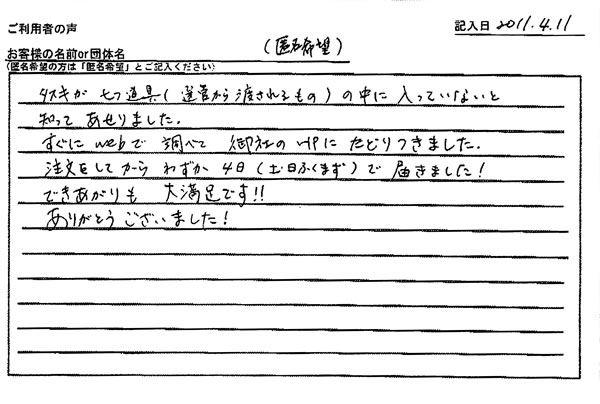 ご利用者の声
記入日 2011.4.11
お客様の名前or団体名
(匿名希望)
(匿名希望の方は「匿名希望」とご記入ください)
タスキが 七つ道具(選管から渡されるもの)の中に入っていないと
知って あせりました.
すぐに webで 調べて 御社の HPに たどりつきました.
注文をしてから わずか 4日(土日ふくまず)で 届きました!
できあがりも 大満足です!!
ありがとう ございました!